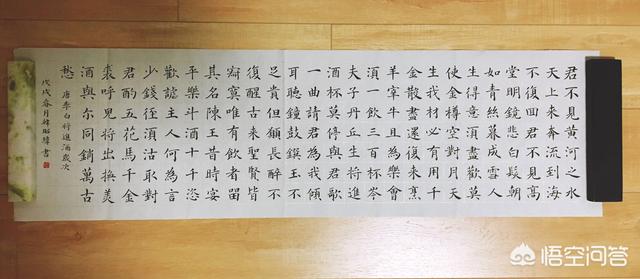 君不見黃河之水
天上來奔流到海
不復回君不見高
堂明鏡悲白髮朝
如青絲暮成雪人
生得意須盡歡莫
使金樽空對月天
生我材必有用千
金散盡還復来烹
羊宰牛且為樂會
須一飲三百杯岑
夫子丹丘生將進
酒杯莫停與君歌
一曲請君為我傾
耳聽鐘鼓饌玉不
足貴但願長醉不
復醒古来聖賢皆
寂寞唯有飲者留
其名陳王昔時宴
平樂斗酒十千恣
歡謔主人何為言
少錢徑須沽取對
君酌五花馬千金
裘呼兒將出換美
酒與尔同銷萬古
愁
唐李白 進酒歲次
戊戌春月韓昭 書
悟空问答